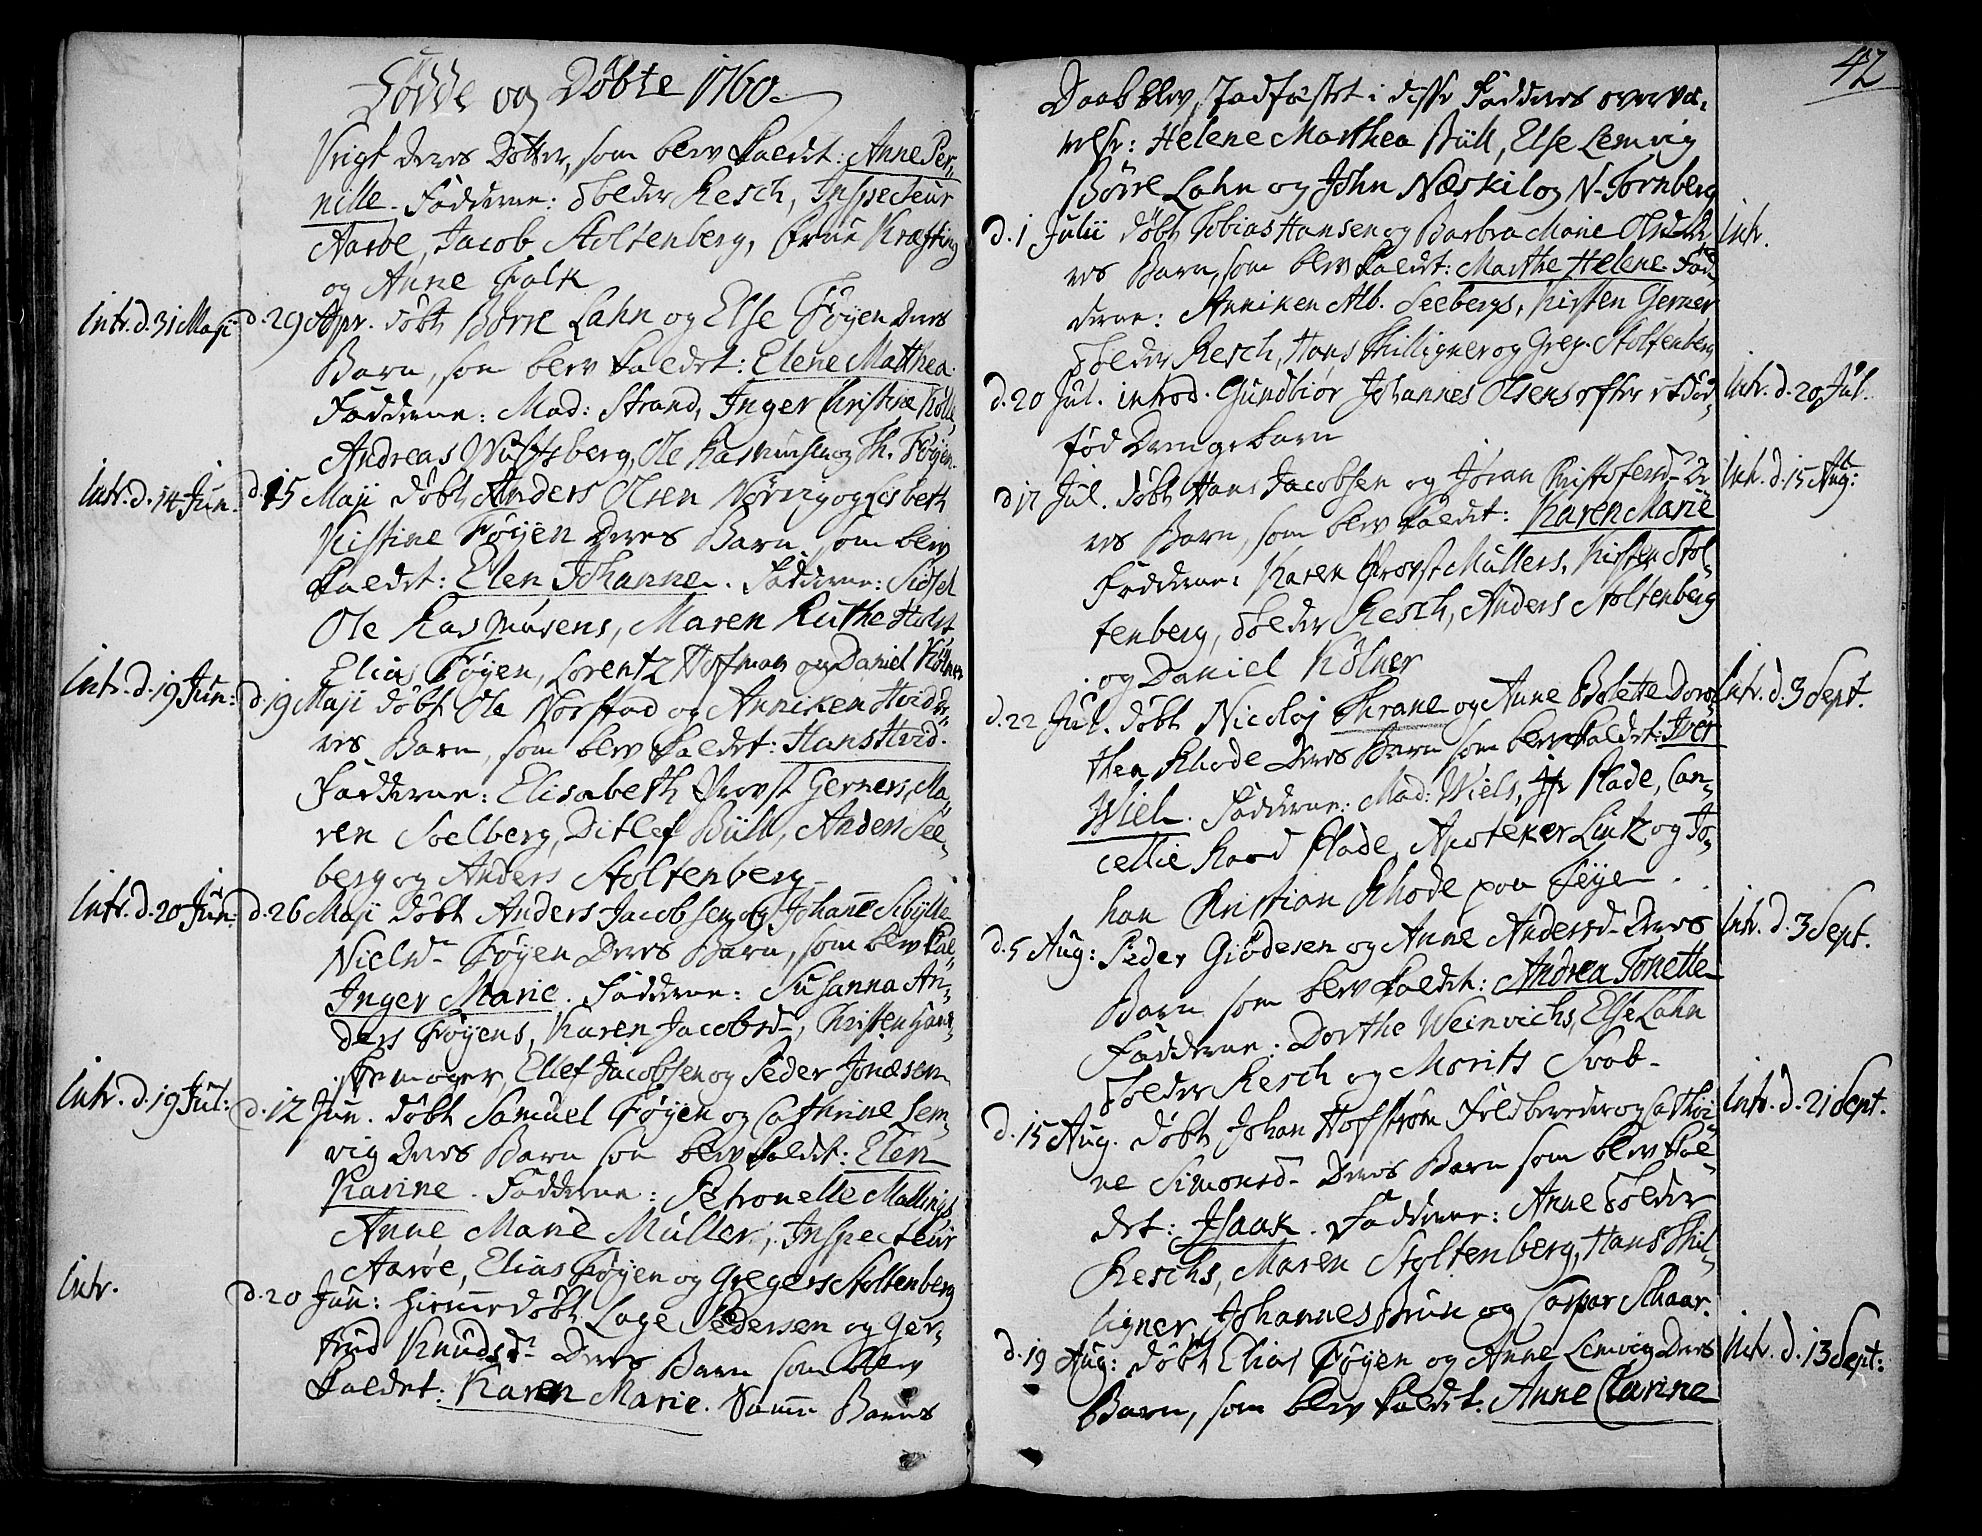 Fødde og Døbte 1760.
Vrigt deres Dotter, som blev kaldet: Anne Per-
nille. Fadderne: Tolder Resch, Inspecteur
Aaroe, Jacob Stoltenberg, Frue Kræfting
og Anne Falk
Intr. d. 31 Maji
d. 29 Apr. døbt Børre Lahn og Else Føyen Deres
Barn, som blev kaldet: Elene Matthea.
Fadderne: Mad: Strand, Inger Cristine
Andreas Wulfsberg, Ole Rasmusen og Th. Føyen.
Intr. d. 14 Jun.
d. 15 Maji døbt Anders Olsen Nørvig og Lisbeth
Kistine Føyen Deres Barn, som blev
kaldet: Elen Johanne. Fadderne: Sidsel
Ole Rasmusens, Maren Ruthe Holst
Elias Føyen, Lorentz Hofman og Daniel Kølner
Intr. d. 19 Jun:
d. 19 Maji døbt Ole Norstad og Anniken Hvid De-
res Barn, som blev kaldet: Hans Hvid.
Fadderne: Elisabeth Provst Gerners, Ma-
ren Soelberg, Ditlef Büll, Anders See-
berg og Anders Stoltenberg
Intr. d. 20 Jun.
d. 26 Maji døbt Anders Jacobsen og Johane Sibylle
Nielsd. Føyen Deres Barn, som blev kal-
Inger Marie. Fadderne: Susanna An-
ders Føyens, Karen Jacobsd., Christen
, Ellef Jacobsen og Peder Jonæsen
Intr. d. 19 Jul:
d. 12 Jun. døbt Samuel Føyen og Cathrine Lem-
vig Deres Barn som blev kaldet: Elen
Karine. Fadderne: Petronelle Mallings
Anne Marie Müller, Inspecteur
Aarøe, Elias Føyen og Gregers Stoltenberg
Intr.
d. 20 Jun: hiemmedøbt Lage Pedersen og Ger-
trud Knudsd. Deres Barn som blev
kaldet: Karen Marie. Samme Barns
42
Daab blev Stadfæstet i disse Fadderes overvæ-
relse: Helene Marthea Büll, Else Lemvig
Børre Lahn og John Næskil og N. Tornberg
d. 1 Julii døbt Tobias Hansen og Barbra Marie Olsd. De-
res Barn, som blev kaldet: Marthe Helene Fad-
derne: Anniken Alb. Seebergs, Kirsten Gerner
Tolder Resch, Hans Thilligner og Greg. Stoltenberg
Intr.
d. 20 Jul. introd. Gundbiør Johannes Olsens efter et Død-
fød Drengebarn
Intr. d. 20 Jul.
d. 17 Jul. døbt Hans Jacobsen og Jøran Christofersd. De-
res Barn, som blev kaldet: Karen Marie
Fadderne: Karen Provst Müllers, Kirsten Stol-
tenberg, Tolder Resch, Anders Stoltenberg
og Daniel Kølner
Intr. d. 15 Aug:
d. 22 Jul. døbt Nicolaj Thrane og Anne Bolette Doro-
thea Rhode Deres Barn som blev kaldet: Iver
Wiel. Fadderne: Mad: Wiels, Jfr Plade, Can-
cellie Raad Plade, Apoteker Lintz og Jo-
han Christian Rhode paa Teye.
Intr. d. 3 Sept.
d. 5 Aug: Peder Giødesen og Anne Andersd. Deres
Barn som blev kaldet: Andrea Tonette
Fadderne: Dorthe Weinvichs, Else Lahn
Tolder Resch og Morits Svob.
Intr. d. 3 Sept.
d. 15 Aug. døbt Johan Hofstrøm Feldbereder og Cathri-
ne Simonsd. Deres Barn som blev kal-
det: Isaak. Fadderne: Anne Tolder
Reschs, Maren Stoltenberg, Hans Thil-
ligner, Johannes Brun og Caspar Schaar.
Intr. d. 21 Sept.
d. 19 Aug: døbt Elias Føyen og Anne Lemvig Deres
Barn, som blev kaldet: Anne Carine
Intr. d. 13 Sept: